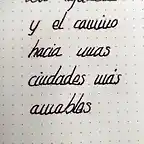 y el camino
hacia unas
ciudades más
amables